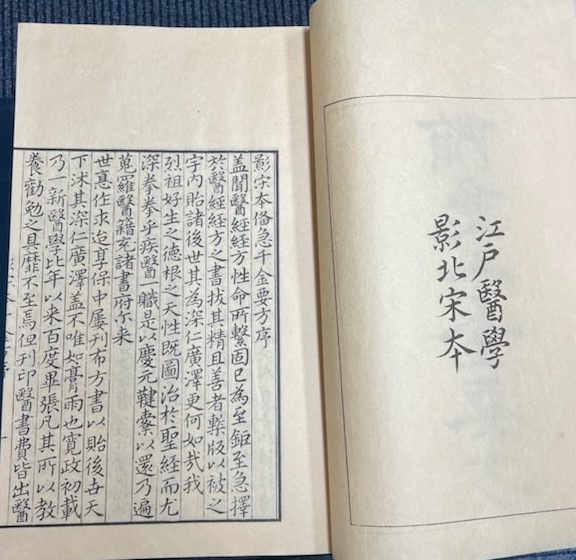 江戶醫學
影北宋本
影宋本俻急千金要方序
蓋聞醫經經方性命所繫固已為至鉅至急擇
於醫經經方之書拔其精且善者槧版以被之
宇內貽諸後世其為深仁廣澤更何如哉我
烈祖好生之德根之天性既圖治於聖經而尤
深拳拳乎疾醫一職是以慶元鞬櫜以還乃遍
蒐羅醫籍充諸書府尔来
世悳作求迨享保中屢刊布方書以貽後世天
下沐其深仁廣澤蓋不唯如膏雨也寬政初載
乃一新醫學比年以来百度畢張凡其所以教
養勸勉之具靡不至焉但刊印醫書費皆出醫